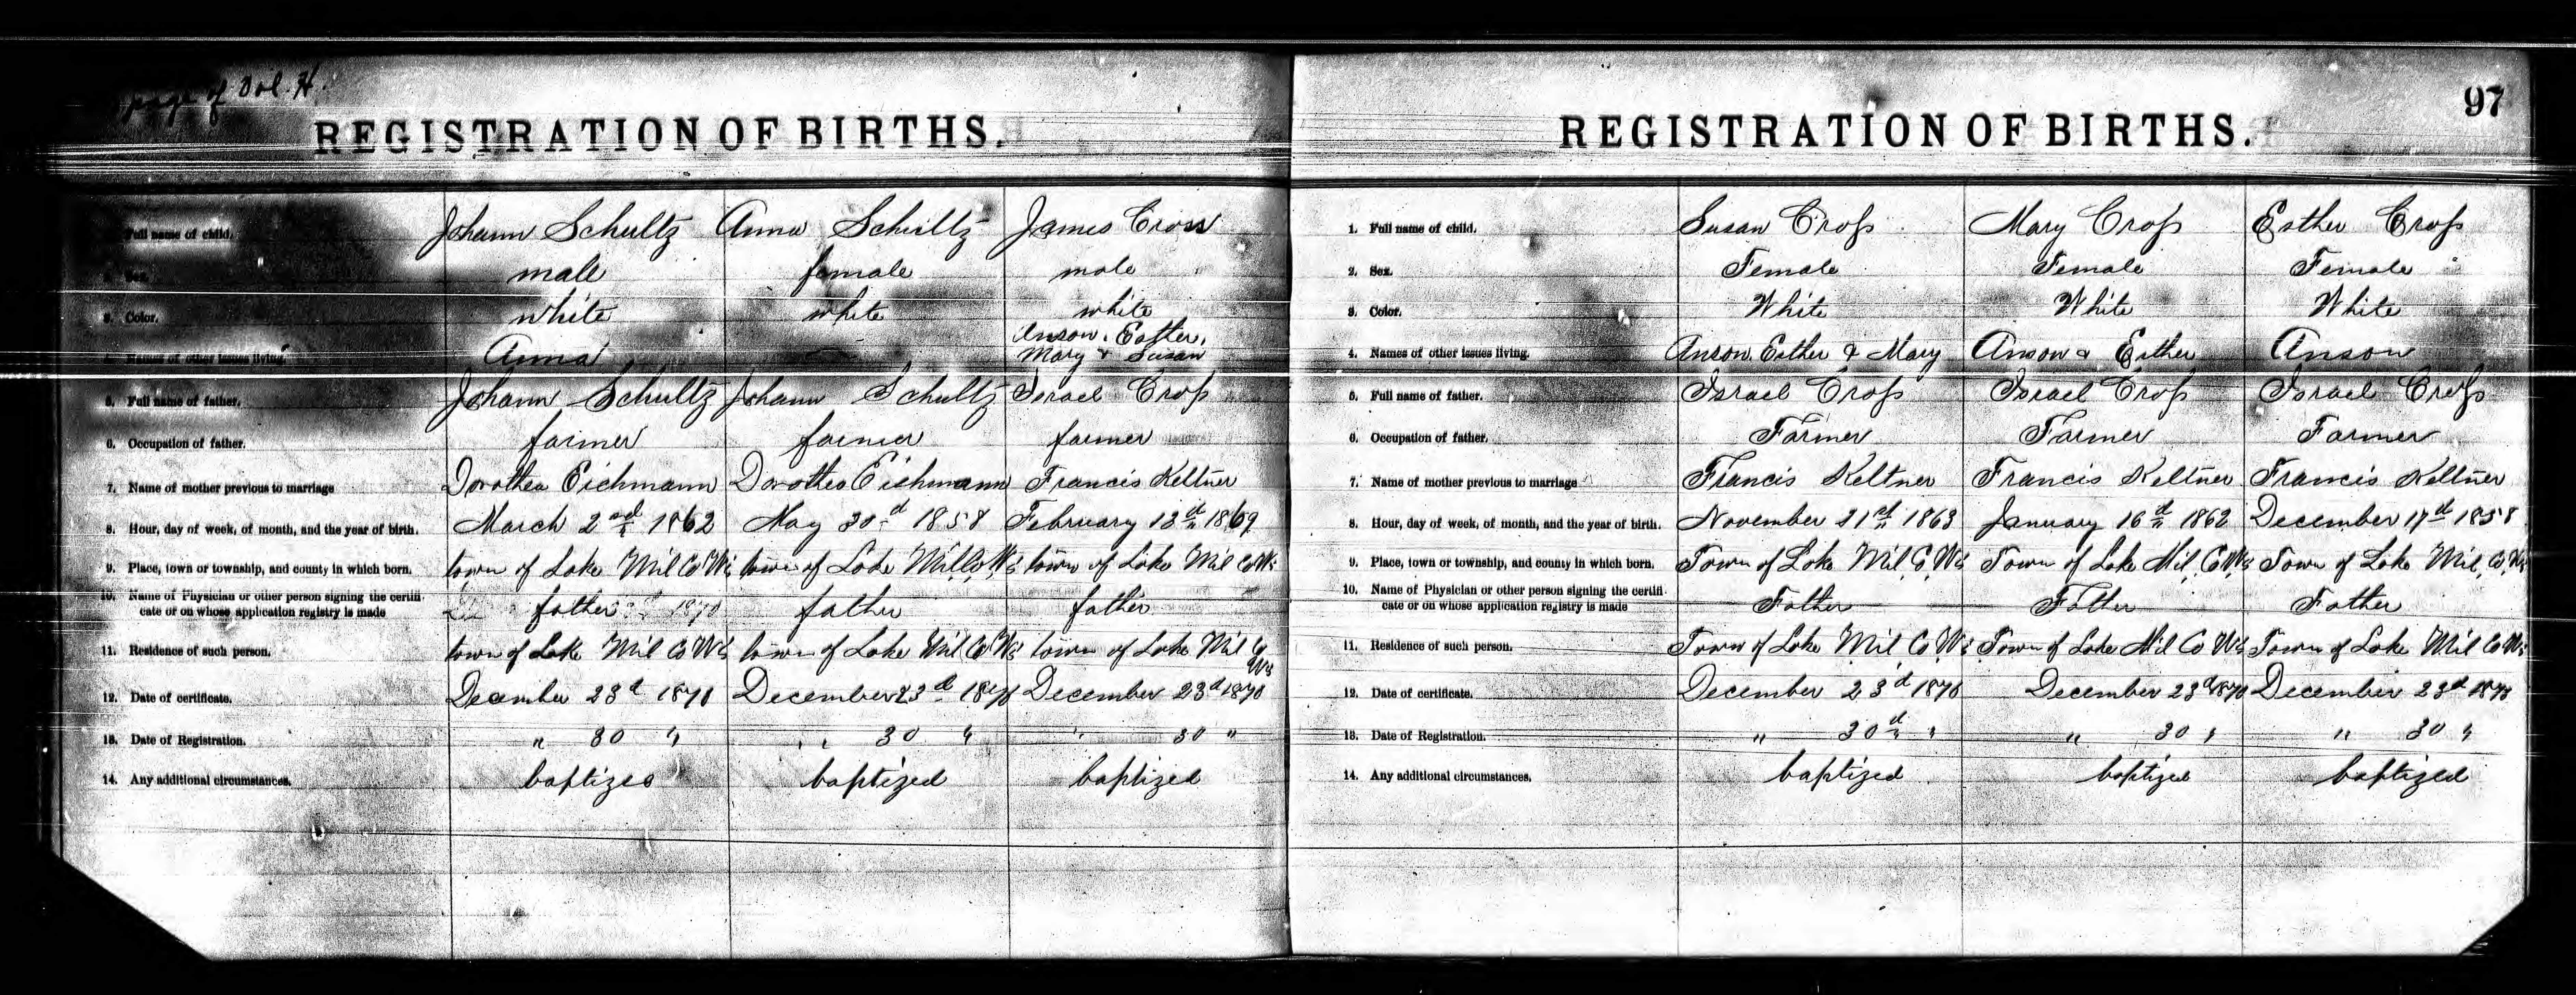 page of Vol. H.
REGISTRATION OF BIRTHS.
Full name of child. Johann Schultz Anna Schultz James Cross
Sex. male female male
3. Color. white white white
Names of other issues living. Anna — Anson, Esther,
Mary & Susan
5. Full name of father. Johann Schultz Johann Schultz Israel Croſs
6. Occupation of father. farmer farmer farmer
7. Name of mother previous to marriage Dorothea Eichmann Dorothea Eichmann Francis Keltner
8. Hour, day of week, of month, and the year of birth. March 2nd 1862 May 30d 1858 February 13d 1869
9. Place, town or township, and county in which born. town of Lake Mil Co Wis town of Lake Mil Co Wis town of Lake Mil Co Wis
10. Name of Physician or other person signing the certifi-
cate or on whose application registry is made father father father
11. Residence of such person. town of Lake Mil Co Wis town of Lake Mil Co Wis town of Lake Mil Co
Wis
12. Date of certificate. December 23d 1870 December 23d 1870 December 23d 1870
13. Date of Registration. " 30 " " 30 " " 30 "
14. Any additional circumstances. baptized baptized baptized
97
REGISTRATION OF BIRTHS.
1. Full name of child. Susan Croſs Mary Croſs Esther Croſs
2. Sex. Female Female Female
3. Color. White White White
4. Names of other issues living. Anson, Esther & Mary Anson & Esther Anson
5. Full name of father. Israel Croſs Israel Croſs Israel Croſs
6. Occupation of father. Farmer Farmer Farmer
7. Name of mother previous to marriage Francis Keltner Francis Keltner Francis Keltner
8. Hour, day of week, of month, and the year of birth. November 21st 1863 January 16d 1862 December 17d 1858
9. Place, town or township, and county in which born. Town of Lake Mil, Co, Wis Town of Lake Mil, Co Wis Town of Lake Mil, Co, Wis
10. Name of Physician or other person signing the certifi-
cate or on whose application registry is made Father Father Father
11. Residence of such person. Town of Lake Mil Co Wis Town of Lake Mil Co Wis Town of Lake Mil Co Wis
12. Date of certificate. December 23d 1870 December 23d 1870 December 23d 1870
13. Date of Registration. " 30d " " 30 " " 30 "
14. Any additional circumstances. baptized baptized baptized